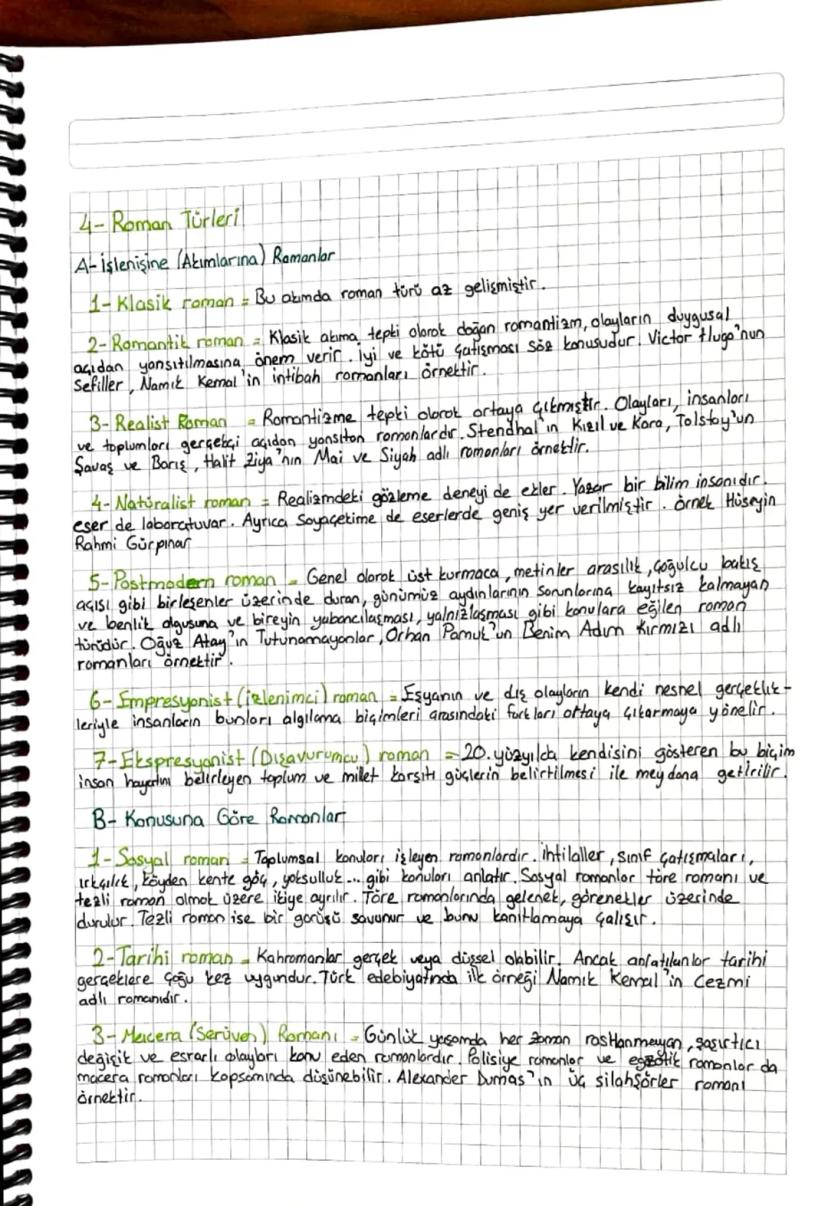 4- Roman Türleri
A- İşlenişine (Akımlarına) Romanlar
1- Klasik roman = Bu akımda roman türü az gelişmiştir.
2- Romantik roman = Klasik akıma tepki olarak doğan romantizm, olayların duygusal
açıdan yansıtılmasına önem verir. İyi ve kötü çatışması söz konusudur. Victor Hugo'nun
Sefiller, Namık Kemal'in intibah romanları örnektir.
3- Realist Roman = Romantizme tepki olarak ortaya çıkmıştır. Olayları, insanları
ve toplumları gerçekçi açıdan yansıtan romanlardır. Stendhal'ın Kızıl ve Kara, Tolstoy'un
Savaş ve Barış, Halit Ziya'nın Mai ve Siyah adlı romanları örnektir.
4- Natüralist roman = Realizmdeki gözleme deneyi de ekler. Yazar bir bilim insanıdır.
eser de laboratuvar. Ayrıca Soyaçekime de eserlerde geniş yer verilmiştir. örnek Hüseyin
Rahmi Gürpınar
5- Postmodern roman = Genel olarak üst kurmaca, metinler arasılık, çoğulcu bakış
açısı gibi birleşenler üzerinde duran, günümüz aydınlarının sorunlarına kayıtsız kalmayan
ve benlik olgusuna ve bireyin yabancılaşması, yalnızlaşması gibi konulara eğilen roman
türüdür. Oğuz Atay'ın Tutunamayanlar, Orhan Pamuk'un Benim Adım Kırmızı adlı
romanları örnektir.
6- Empresyonist (izlenimci) roman = Eşyanın ve dış olayların kendi nesnel gerçeklik-
leriyle insanların bunları algılama biçimleri arasındaki farkları ortaya çıkarmaya yönelir.
7- Ekspresyonist (Dışavurumcu) roman = 20. yüzyılda kendisini gösteren bu biçim
insan hayatını belirleyen toplum ve millet karşıtı güçlerin belirtilmesi ile meydana getirilir.
B- Konusuna Göre Romanlar
1- Sosyal roman = Toplumsal konuları işleyen romanlardır. ihtilaller, sınıf çatışmaları,
ırkçılık, köyden kente göç, yoksulluk... gibi konuları anlatır. Sosyal romanlar töre romanı ve
tezli roman olmak üzere ikiye ayrılır. Töre romanlarında gelenek, görenekler üzerinde
durulur. Tezli roman ise bir görüşü savunur ve bunu kanıtlamaya çalışır.
2- Tarihi roman = Kahramanlar gerçek veya düşsel olabilir. Ancak anlatılanlar tarihi
gerçeklere çoğu kez uygundur. Türk edebiyatında ilk örneği Namık Kemal'in Cezmi
adlı romanıdır.
3- Macera (Serüven) Romanı = Günlük yaşamda her zaman rastlanmayan, şaşırtıcı
değişik ve esrarlı olayları konu eden romanlardır. Polisiye romanlar ve egzotik romanlar da
macera romanları kapsamında düşünebilir. Alexander Dumas'ın üç silahşörler romanı
örnektir.